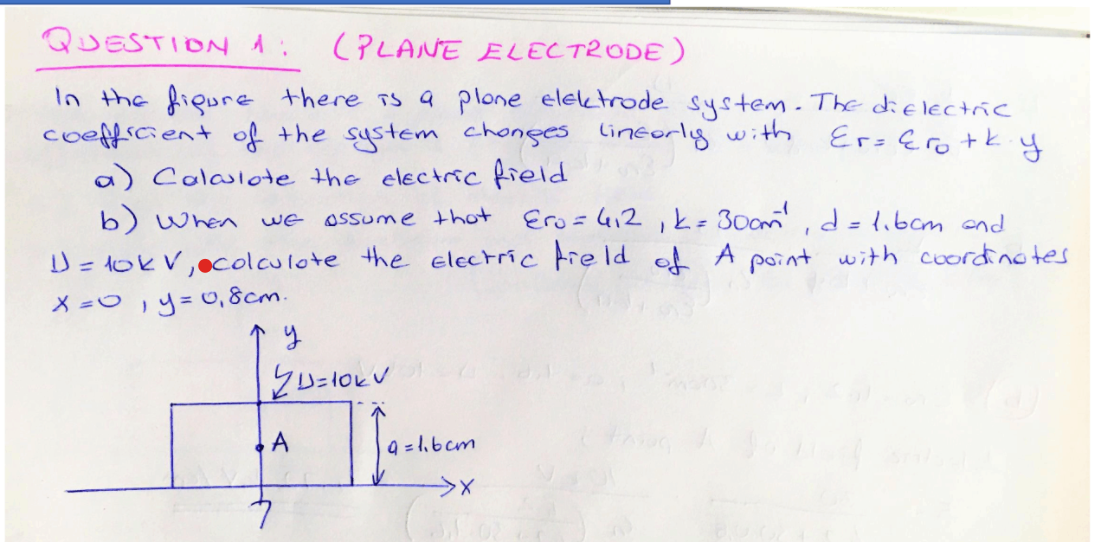 QUESTION 1: (PLANE ELECTRODE)
In the figure there is a plane elektrode system. The dielectric
coefficient of the system changes linearly with εr = εro + k.y
a) Calculate the electric field
b) When we assume that εro = 4,2 , k = 30cm⁻¹ , d = 1.6cm and
U = 10kV, calculate the electric field of A point with coordinates
x = 0 , y = 0,8cm.
y
U=10kV
A
a = 1.6cm
x